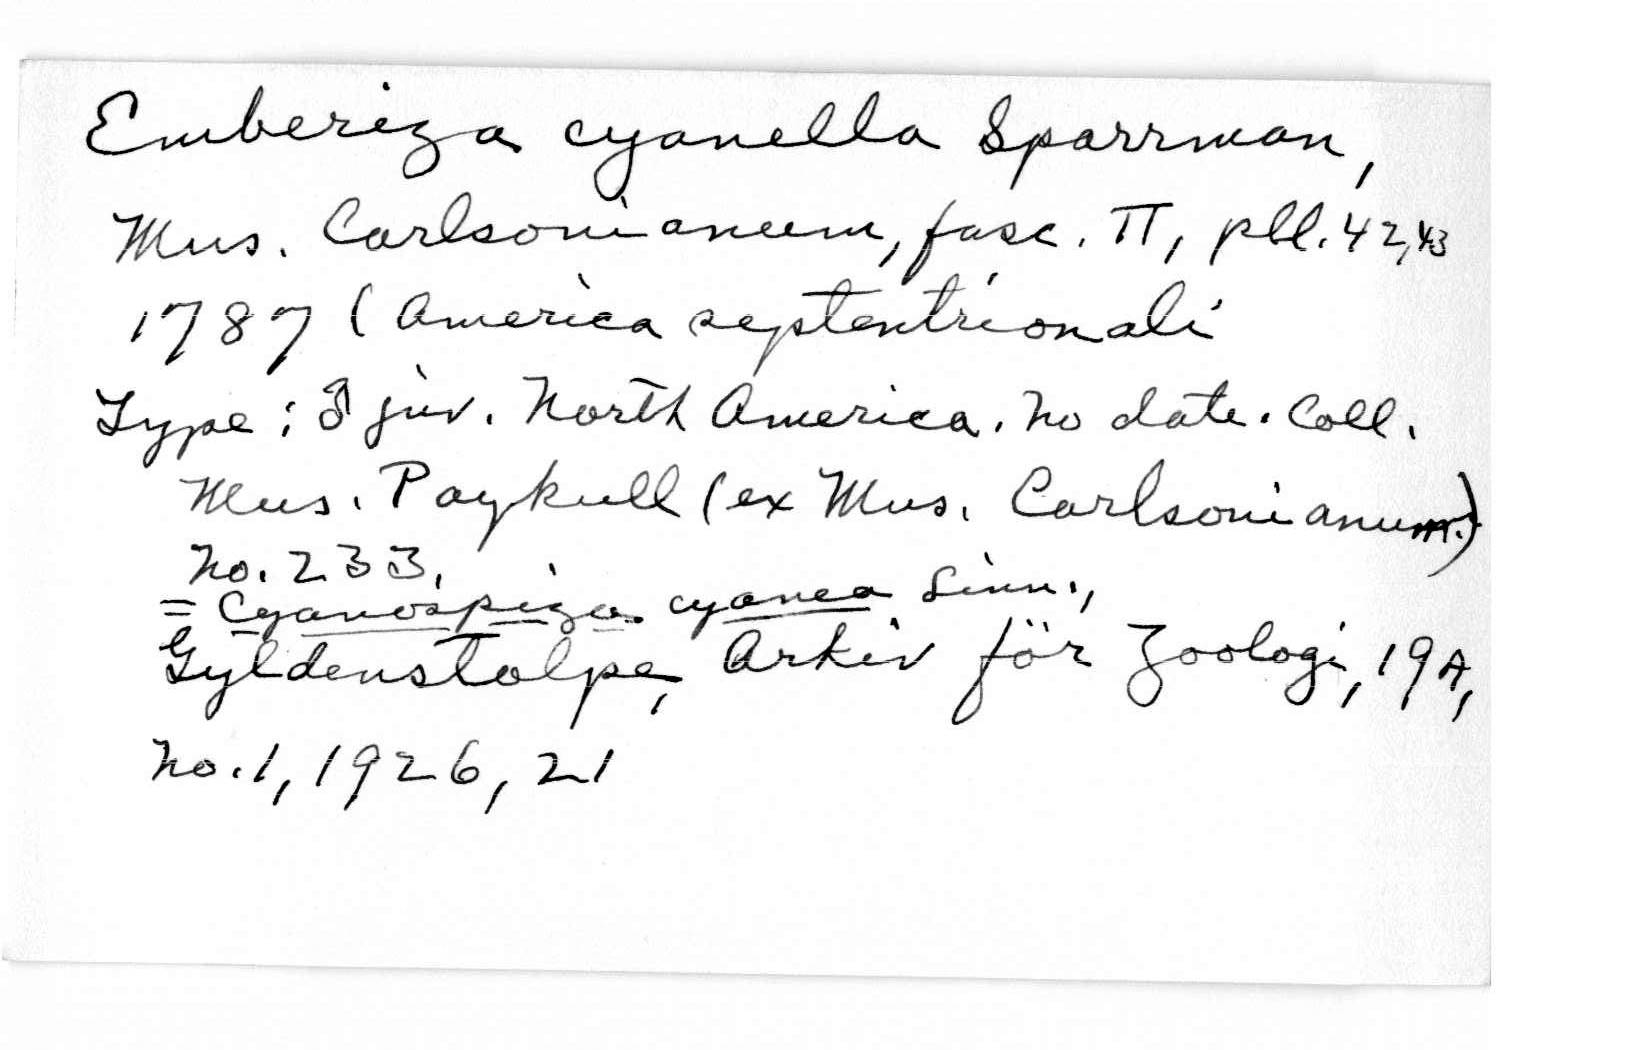 Emberiza cyanella Sparrman,
Mus. Carlsonianeum, fasc. II, pll. 42,43
1787 (America septentrionali
Type : ♂ juv. North America. No date. Coll.
Mus. Paykull (ex Mus. Carlsonianum.)
No. 233.
= Cyanospiza cyanea Linn.,
Gyldenstolpe, Arkiv för Zoologi, 19A,
No. 1, 1926, 21